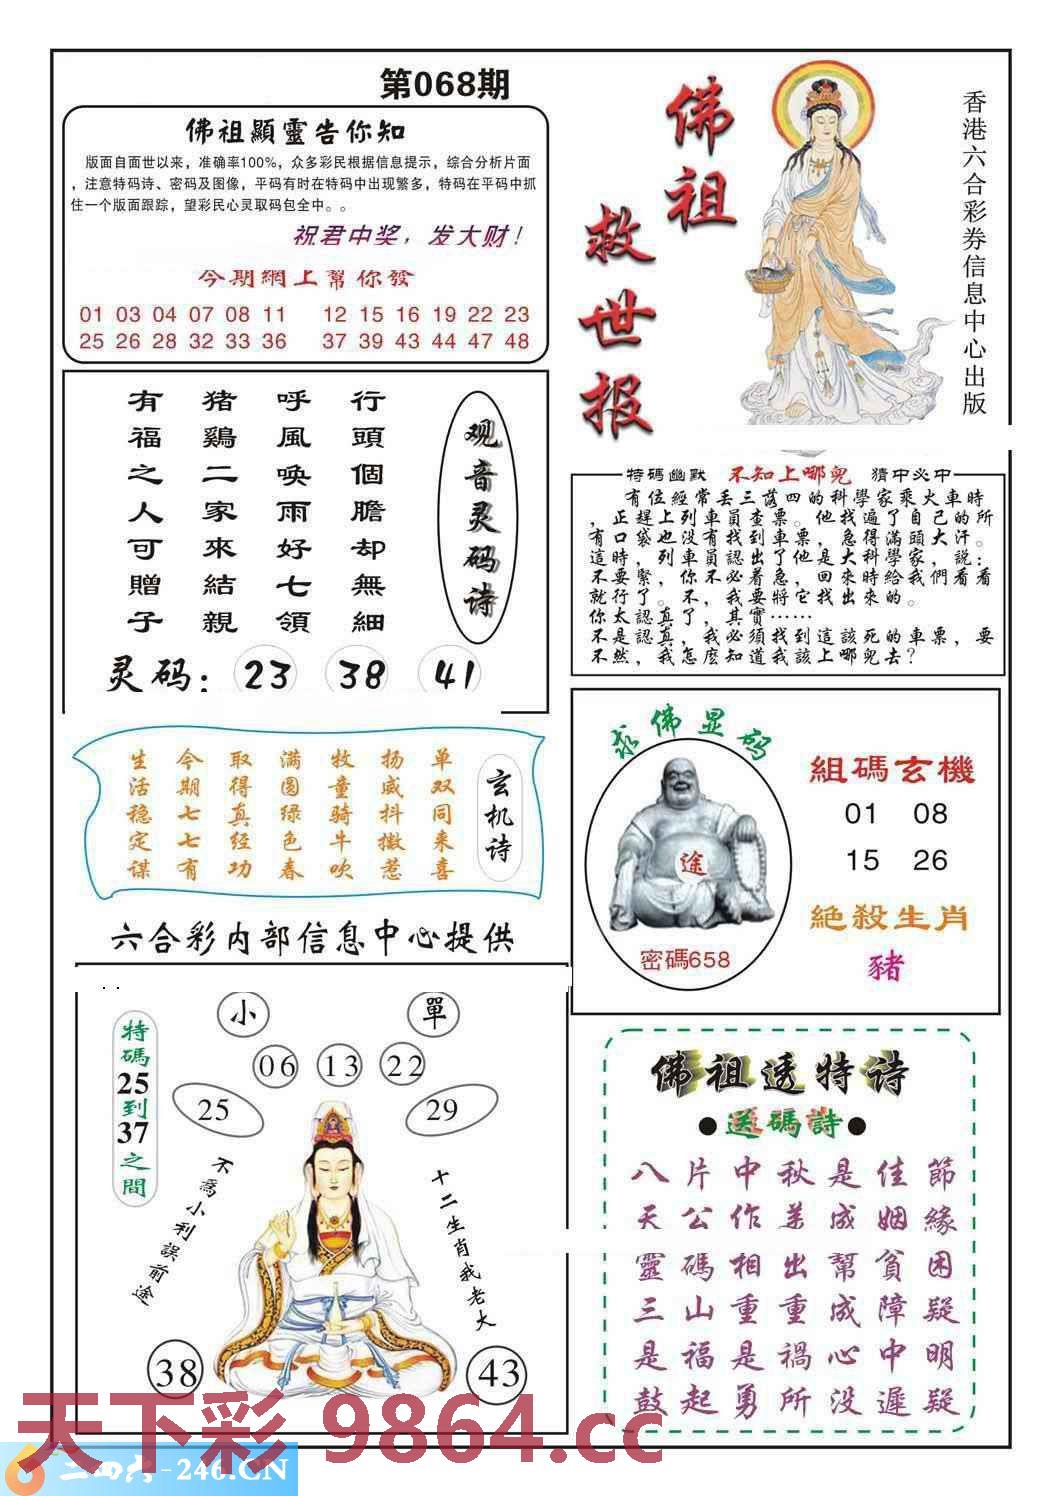 第068期
佛祖顯靈告你知
版面自面世以来，准确率100%，众多彩民根据信息提示，综合分析片面
，注意特码诗、密码及图像，平码有时在特码中出现繁多，特码在平码中抓
住一个版面跟踪，望彩民心灵取码包全中。。
祝君中奖，发大财！
今期網上幫你發
01 03 04 07 08 11 12 15 16 19 22 23
25 26 28 32 33 36 37 39 43 44 47 48
佛祖
救世报
香港六合彩券信息中心出版
观音灵码诗
行頭個膽却無細
呼風唤雨好七領
猪鷄二家來結親
有福之人可贈子
灵码：23 38 41
特碼幽默 不知上哪兒 猜中必中
有位經常丢三落四的科學家乘火車時
，正趕上列車員查票。他找遍了自己的所
有口袋也没有找到車票，急得滿頭大汗。
這時，列車員認出了他是大科學家，説：
不要緊，你不必着急，回來時給我們看看
就行了。不，我要將它找出來的。
你太認真了，其實……
不是認真，我必須找到這該死的車票，要
不然，我怎麽知道我該上哪兒去？
玄机诗
单双同来喜
扬威抖擞惹
牧童骑牛吹
满圆绿色春
取得真经功
今期七七有
生活稳定谋
六合彩内部信息中心提供
求佛显码
途
密碼658
組碼玄機
01 08
15 26
絶殺生肖
豬
小 單
06 13 22
25 29
特碼25到37之間
不爲小利誤前途
十二生肖我老大
38 43
佛祖透特诗
●送碼詩●
八片中秋是佳節
天公作美成姻緣
靈碼相出幫貧困
三山重重成障疑
是福是禍心中明
鼓起勇所没遲疑
天下彩 9864.cc
二四六-246.CN